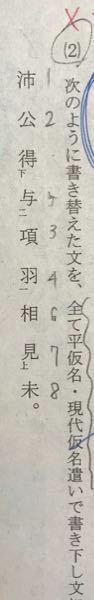 (2) 次のように書き替えた文を、全て平仮名・現代仮名遣いで書き下し文
1 2 5 3 4 6 7 8
沛公得下与二項羽一相見上未。